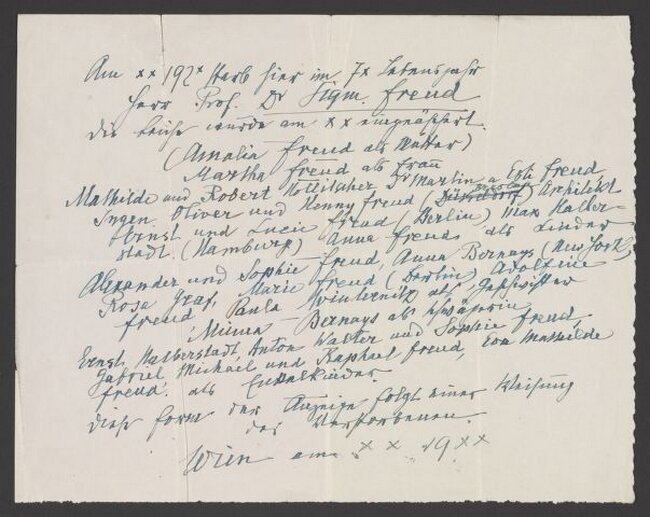 Am xx 192x starb hier im 7x Lebensjahr
Herr Prof. Dr Sigm. Freud
Die Leiche wurde am x x eingeäschert.
(Amalie Freud als Mutter)
Martha Freud als Frau
Mathilde und Robert Hollitscher Dr Martin u Esti Freud,
Ingen Oliver und Henny Freud Düsseldorf) Architekt
Ernst und Lucie Freud (Berlin) Max Halber-
stadt (Hamburg) Anna Freud als Kinder
Alexander und Sophie Freud, Anna Bernays (New York),
Rosa Graf, Marie Freud (Berlin) Adolfine
Freud Paula Winternitz als Geschwister
Minna Bernays als Schwägerin
Ernst Halberstadt, Anton Walter und Sophie Freud,
Gabriel Michael und Raphael Freud, Eva Mathilde
Freud als Enkelkinder.
Diese Form der Anzeige folgt einer Weisung
des Verstorbenen.
Wien am x x 19xx